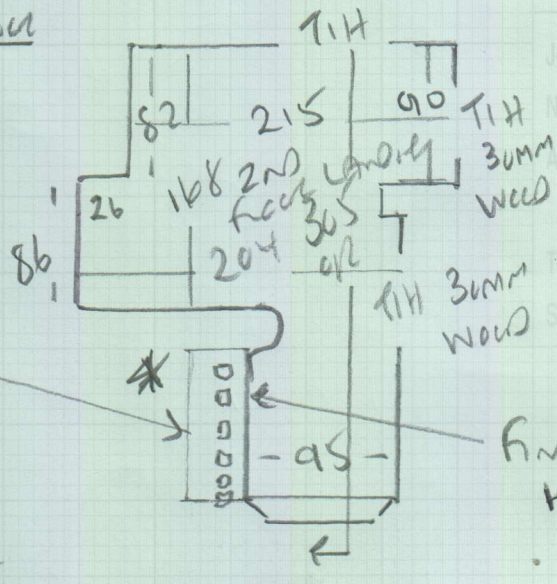 TIH
82
215
90
TIH
30MM
WOOD
26
168
2ND
FLOOR LANDING
305
86
204
TIH 30MM
WOOD
- 95 -